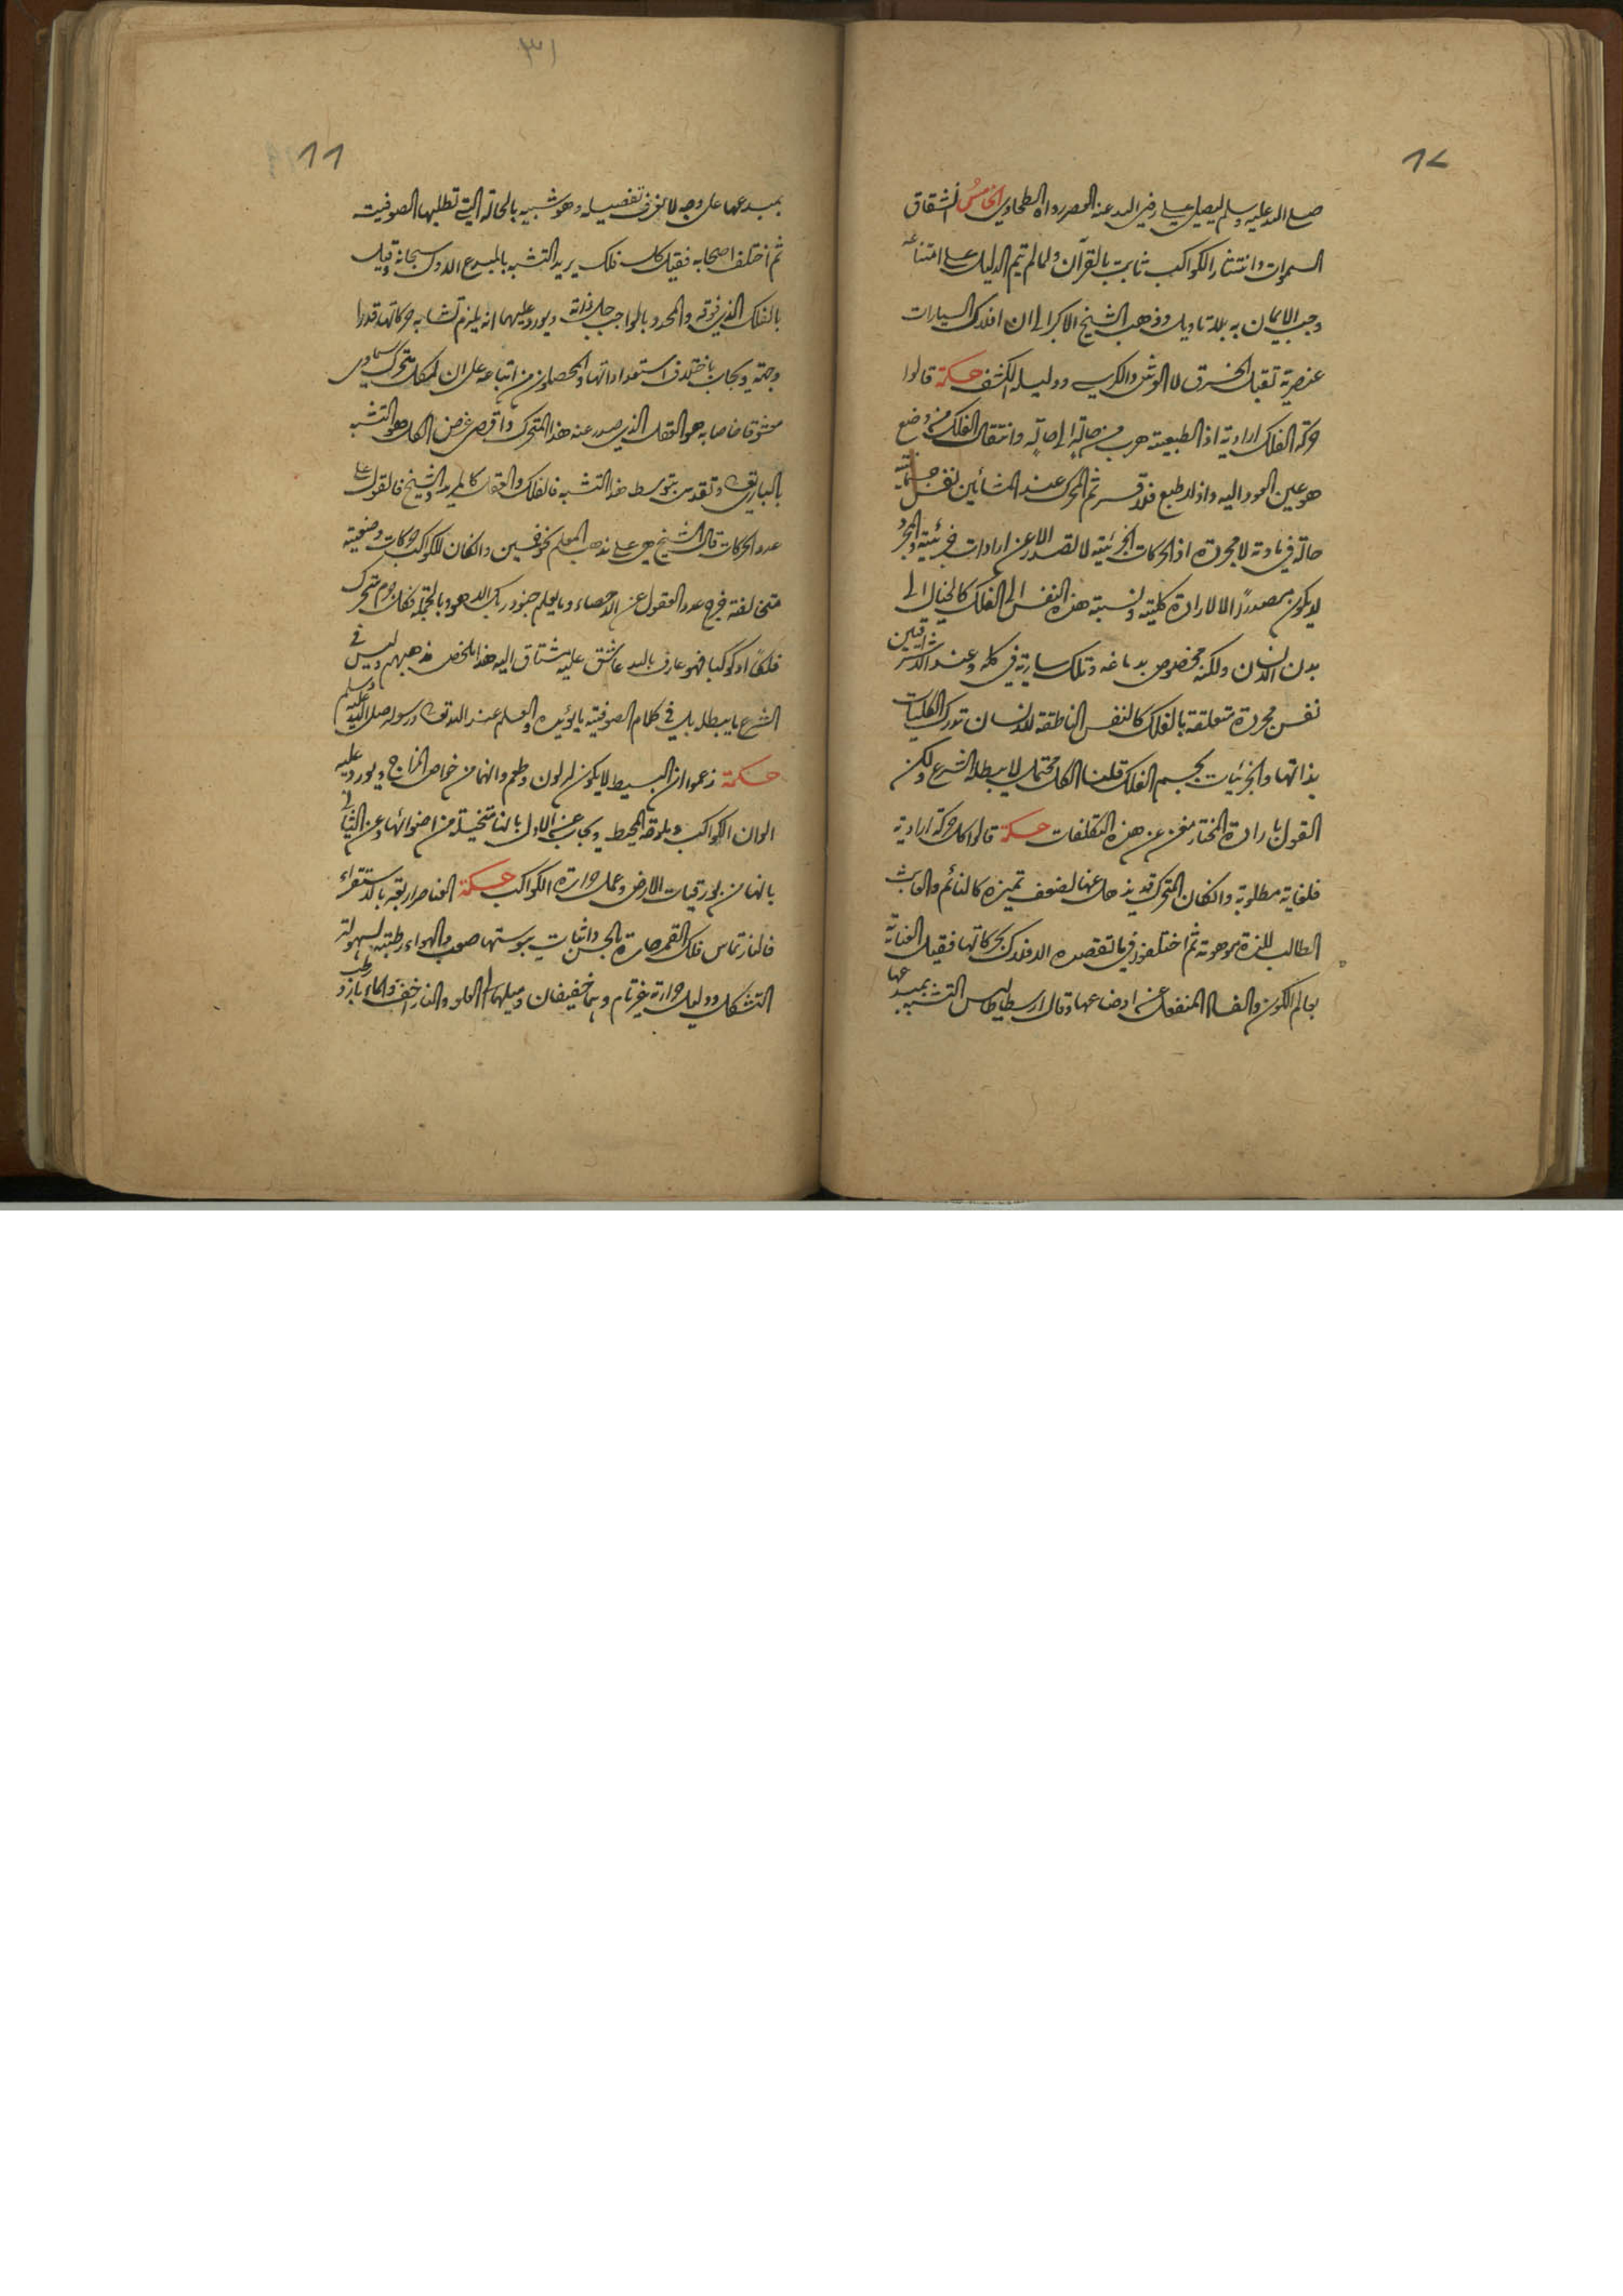 ١٢
صلى الله عليه وسلم ليصلي علي رضي الله عنه العصر رواه الطحاوي الخامس انشقاق
السموات وانتثار الكواكب ثابت بالقرآن ولما لم يتم الدليل على امتناعه
وجب الايمان به بلا تاويل وذهب الشيخ الاكبر الى ان افلاك السيارات
عنصرية تقبل الخرق لا العرش والكرسي ودليله الكشف حكمة قالوا
حركة الفلك ارادية اذ الطبيعية هرب من حالة الى حالة وانتقال الفلك من وضع
هو عين العود اليه واذ لا طبع فلا قسر ثم المحرك عند المشائين نفس جسمانية
حالة في مادته لا مجردة اذ الحركات الجزئية لا تصدر الا عن ارادات جزئية والمجرد
لا يكون مصدرا الا لارادة كلية ونسبة هذه النفس الى الفلك كالخيال الى
بدن الانسان ولكنه مخصوص بدماغه وتلك سارية في كله وعند الاشراقيين
نفس مجردة متعلقة بالفلك كالنفس الناطقة للانسان تدرك الكليات
بذاتها والجزئيات بجسم الفلك قلنا الكل محتمل لا يبطله الشرع ولكن
القول بارادة المختار مغن عن هذه التكلفات حكمة قالوا كل حركة ارادية
فلغاية مطلوبة وان كان المتحرك قد يذهل عنها لضعف تميزه كالنائم والعابث
الطالب للذة موهومة ثم اختلفوا فيما تقصده الافلاك بحركاتها فقيل العناية
بعالم الكون والفساد المنفعل عن اوضاعها وقال ارسطاطاليس التشبه بمبدعها
١١
بمبدعها على وجه لا نعرف تفصيله وهو شبيه بالحالة التي تطلبها الصوفية
ثم اختلف اصحابه فقيل كل فلك يريد التشبه بالمبدع الاول سبحانه وقيل
بالفلك الذي فوقه والمحدد بالواجب جل ذاته ويورد عليهما انه يلزم تشابه حركاتها قدرا
وجهة ويجاب باختلاف استعداداتها والمحصلون من اتباعه على ان لكل متحرك سماوي
معشوقا خاصا به هو العقل الذي صدر عنه هذا المتحرك واقصى غرض الكل هو التشبه
بالباري تعالى وتقدس بتوسط هذا التشبه فالفلك والعقل كالمريد والشيخ فالعقول على
عدد الحركات قال الشيخ هي على مذهب المعلم نحو خمسين وان كان للكواكب حركات وضعية
متخالفة خرج عدد العقول عن الاحصاء وما يعلم جنود ربك الا هو وبالجملة فكل جرم متحرك
فلكا او كوكبا فهو عارف بالله عاشق عليه مشتاق اليه هذا ملخص مذهبهم وليس في
الشرع ما يبطله بل في كلام الصوفية ما يؤيده والعلم عند الله تعالى ورسوله صلى الله عليه وسلم
حكمة زعموا ان البسيط لا يكون له لون وطعم وانهما من خواص المزاج ويورد عليه
الوان الكواكب وملوحة المحيط ويجاب عن الاول بانها متخيلة من اضوائها وعن الثاني
بانها من بورقيات الارض وعمل حرارة الكواكب حكمة العناصر اربعة بالاستقراء
فالنار تماس فلك القمر حارة بالحس واثبات يبوستها صعب والهواء رطبته لسهولة
التشكل ودليل حرارته غير تام وهما خفيفان وميلهما الى العلو والنار اخف والماء بارد رطب